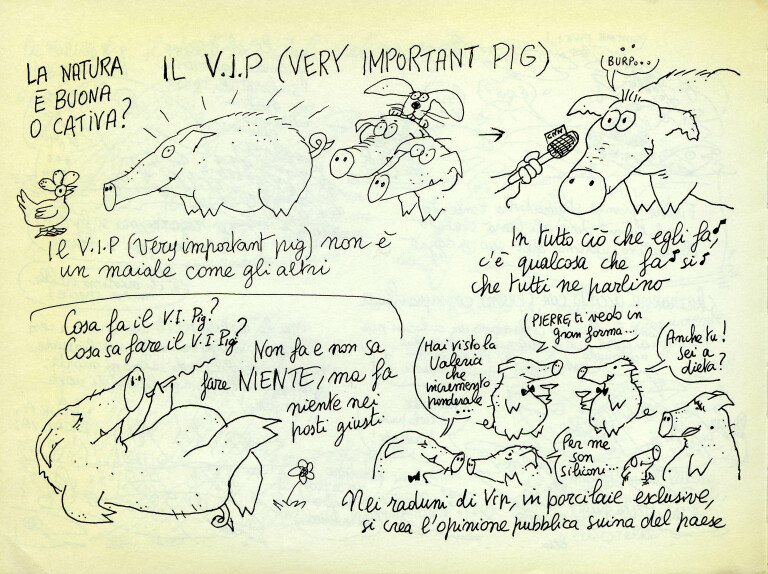 LA NATURA
È BUONA
O CATIVA?
IL V.I.P (VERY IMPORTANT PIG)
BURPO...
CNN
Il V.I.P (Very important pig) non è
un maiale come gli altri
In tutto ciò che egli fa,
c'è qualcosa che fa sì
che tutti ne parlino
Cosa fa il V.I. Pig?
Cosa sa fare il V.I. Pig?
Non fa e non sa
fare NIENTE, ma fa
niente nei
posti giusti
Hai visto la
Valeria
che
incremento
ponderale
...
PIERRE, ti vedo in
gran forma...
Anche tu!
sei a
dieta?
Per me
son
siliconi...
Nei raduni di Vip, in porcilaie esclusive,
si crea l'opinione pubblica suina del paese